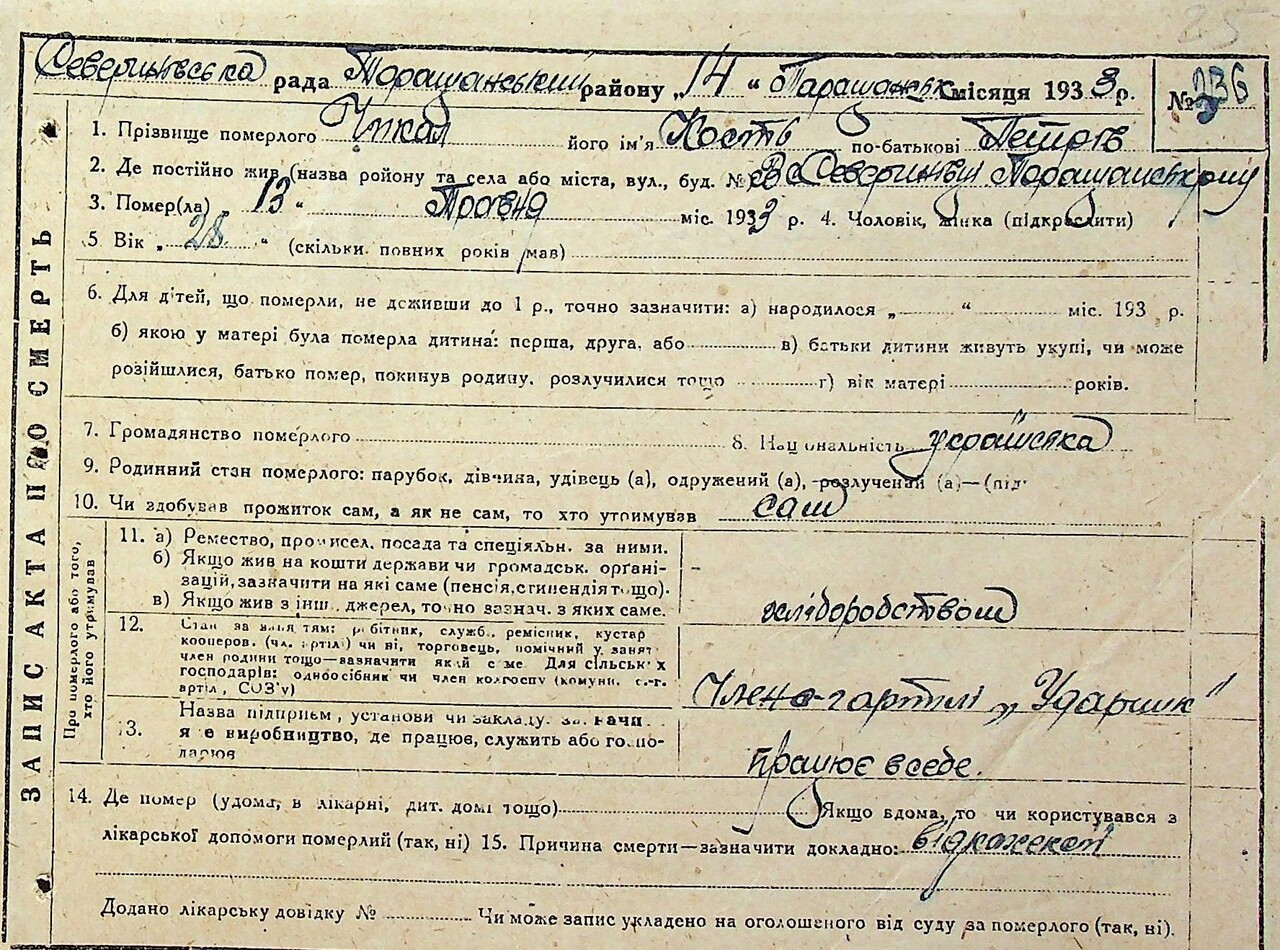 25
Северинівська рада Таращанський району „14 “ Таращанськ місяця 1933 р. № 236
1. Прізвище померлого Чикал його ім'я Кость по-батькові Петрів
2. Де постійно жив (назва району та села або міста, вул., буд. № Вс Северинівці Таращанському
3. Помер(ла) 13 “ Травня міс. 1933 р. 4. Чоловік, жінка (підкреслити)
5. Вік „ 28 “ (скільки повних років мав)
6. Для дітей, що померли, не доживши до 1 р., точно зазначити: а) народилося „ “ міс. 193 р.
б) якою у матері була померла дитина: перша, друга, або в) батьки дитини живуть укупі, чи може
розійшлися, батько помер, покинув родину, розлучилися тощо г) вік матері років.
7. Громадянство померлого 8. Національність українка
9. Родинний стан померлого: парубок, дівчина, удівець (а), одружений (а), розлучений (а)—(під-
10. Чи здобував прожиток сам, а як не сам, то хто утримував сам
ЗАПИС АКТА ПРО СМЕРТЬ
Про померлого або того, хто його утримував
11. а) Ремество, промисел, посада та спеціяльн. за ними.
б) Якщо жив на кошти держави чи громадськ. організацій, зазначити на які саме (пенсія, стипендія тощо).
в) Якщо жив з інш. джерел, точно зазнач. з яких саме.
хліборобством
12. Стан за заняттям: робітник, служб., ремісник, кустар
кооперов. (чл. артілі) чи ні, торговець, помічний у занят.
член родини тощо—зазначити який саме. Для сільськ х
господарів: одноосібник чи член колгоспу (комуни, с.-г.
артіл., СОЗ'у)
Член с-г артілі „Ударник“
13. Назва підприєм., установи чи закладу, зазначи..
я е виробництво, де працює, служить або госпо-
дарює
працює в себе.
14. Де помер (удома, в лікарні, дит. домі тощо) Якщо вдома, то чи користувався з
лікарської допомоги померлий (так, ні) 15. Причина смерти—зазначити докладно:
Додано лікарську довідку № Чи може запис укладено на оголошеного від суду за померлого (так, ні).